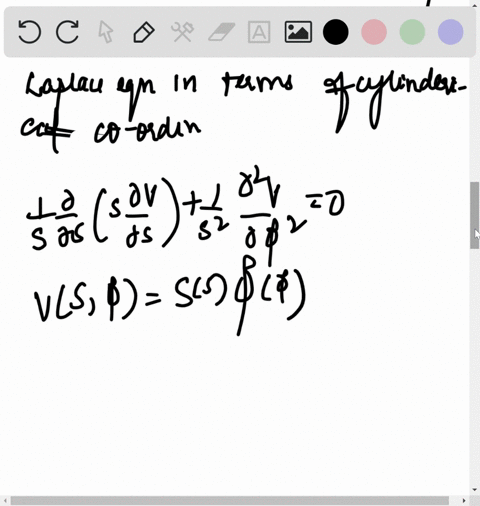 Laplau eqn in terms of cylinderi-
cal co-ordin
1/s ∂/∂s (s ∂V/∂s) + 1/s² ∂²V/∂ϕ² = 0
V(s, ϕ) = S(s) ϕ(ϕ)